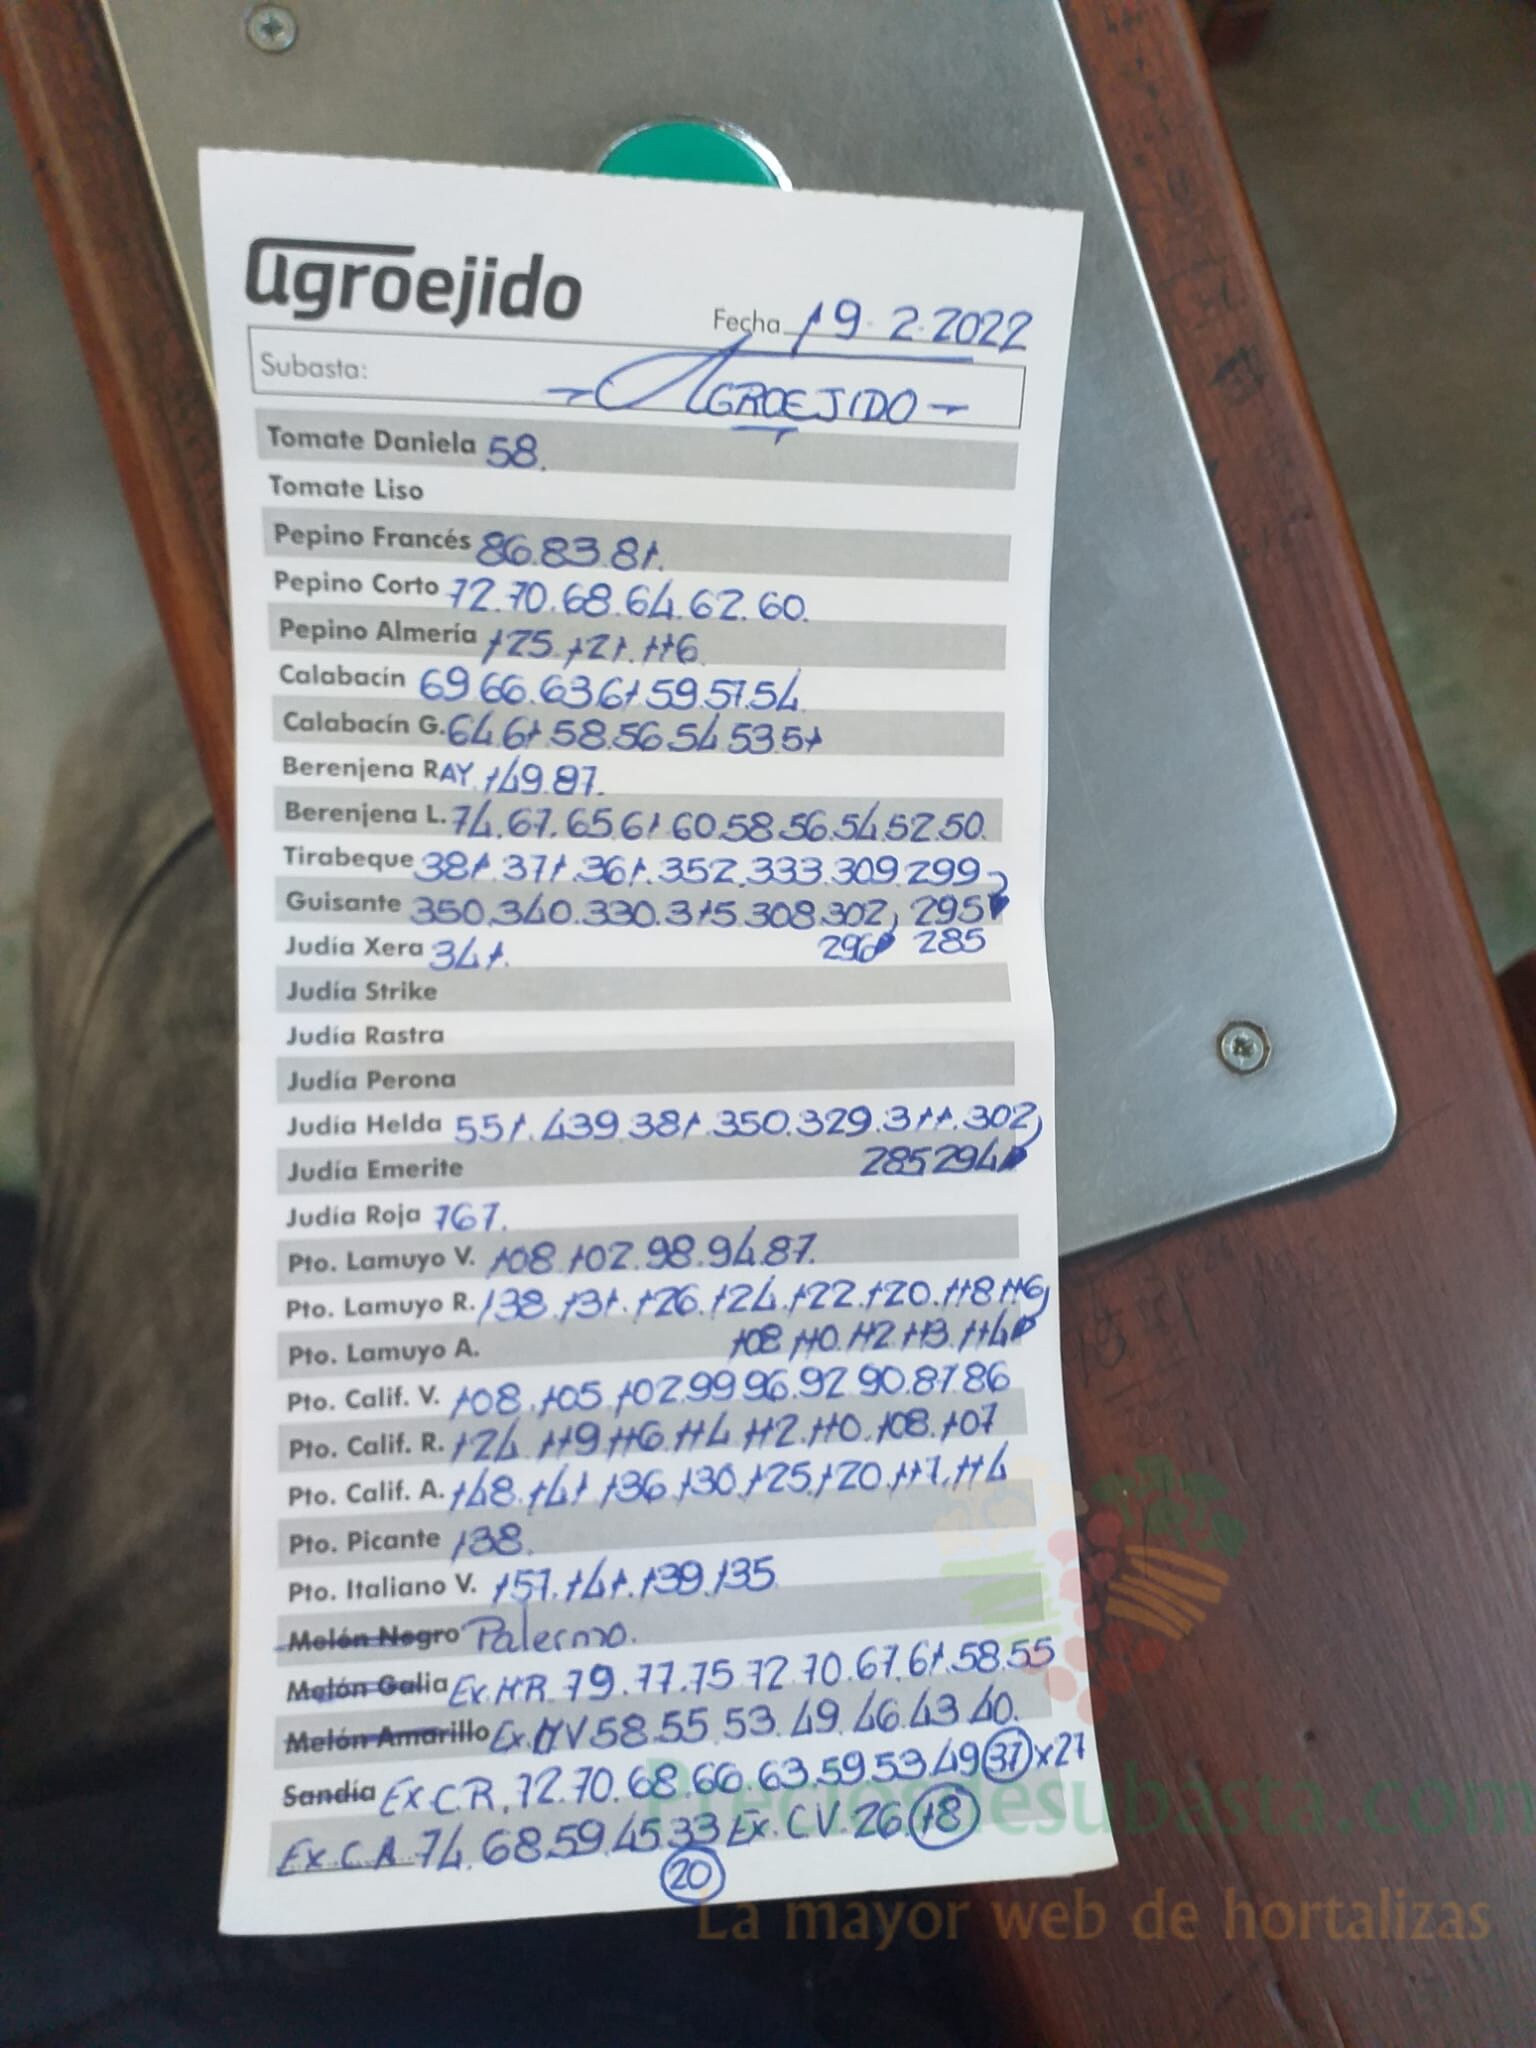 agroejido
Fecha 19-2-2022
Subasta: - AGROEJIDO -
Tomate Daniela 58.
Tomate Liso
Pepino Francés 86.83.81.
Pepino Corto 72.70.68.64.62.60.
Pepino Almería 125.121.116
Calabacín 69 66.63.61.59.57.54
Calabacín G. 64.61.58.56.54.53.51
Berenjena RAY. 149.87.
Berenjena L. 74.67.65.61.60.58.56.54.52.50.
Tirabeque 381.371.361.352.333.309.299
Guisante 350.340.330.315.308.302, 295
Judía Xera 341. 296 285
Judía Strike
Judía Rastra
Judía Perona
Judía Helda 551.439.381.350.329.311.302
Judía Emerite 285 294
Judía Roja 767.
Pto. Lamuyo V. 108.102.98.94.87.
Pto. Lamuyo R. 138.131.126.124.122.120.118.116
Pto. Lamuyo A. 108.110.112.113.114
Pto. Calif. V. 108.105.102.99.96.92.90.87.86
Pto. Calif. R. 124.119.116.114.112.110.108.107
Pto. Calif. A. 148.141.136.130.125.120.117.114
Pto. Picante 138.
Pto. Italiano V. 157.141.139.135
Melón Negro Palermo.
Melón Galia Ex.HR.79.77.75.72.70.67.61.58.55
Melón Amarillo Ex.HV 58.55.53.49.46.43.40.
Sandía Ex.C.R.72.70.68.66.63.59.53.49 37 x 27
Ex.C.A. 74.68.59.45.33 Ex.CV.26.18
20
Preciosdesubasta.com
La mayor web de hortalizas